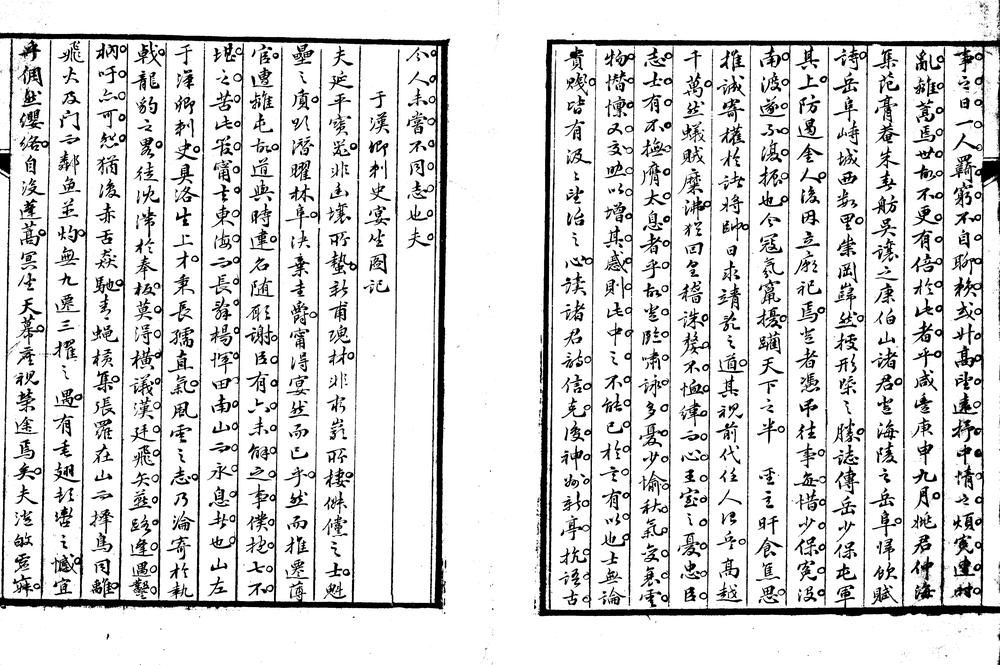 事之日一人羈窮不自聊賴或升高望遠抒中情之煩冤逢時
亂離蒿焉世故不更有倍於此者乎咸豐庚申九月姚君仲海
集范膏菴朱春舫吳讓之康伯山諸君登海陵之岳阜歸飲賦
詩岳阜峙城西數里崇岡巋然按形築之勝誌傳岳少保屯軍
其上防遏金人後因立廟祀焉登者憑弔往事每惜少保冤沒
南渡遂不復振也今寇氛竄擾躪天下之半 聖主旰食焦思
推誠寄權於諸將帥日求靖亂之道其視前代任人得失高越
千萬然蟻賊糜沸猶回皇稽誅嫠不恤緯而心王室之憂忠臣
志士有不撫膺太息者乎故登臨嘯詠多憂少愉秋氣變衰雲
物憯懍又交助以增其感則此中之不能已於言有以也士無論
貴賤皆有汲汲望治之心讀諸君詩信克復神州新亭抗語古
今人未嘗不同志也夫
于漢卿刺史宴坐圖記
夫延平寶氣非幽壤所蟄新甫瑰材非窮巖所棲俶儻之士魁
壘之質跡潛曜林阜決棄圭爵甯得宴然而已乎然而推遷薄
宦遭離屯故道與時違名隨願謝臣有六未解之事僕抱七不
堪之苦此管甯去東海而長辭楊惲田南山而永息者也山左
于漢卿刺史具洛生上才秉長孺直氣風雲之志乃淪寄於執
戟龍豹之畧徒沈滯於奉板莫得橫議漢廷飛矢燕路逢遇鑿
枘吁亦可怨猶復赤舌焱馳青蝿橫集張羅在山而擇鳥同離
飛火及門而鄰魚並灼無九遷三擢之遇有毛翅彭鬱之憾宜
乎倜然纓絡自沒蓬蒿冥坐天幕塵視榮途焉矣夫澄敏靈寐